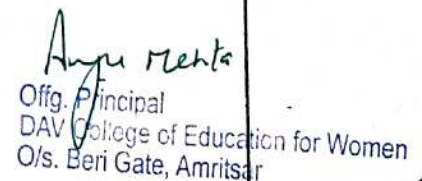 Anju Mehta
Offg. Principal
DAV College of Education for Women
O/s. Beri Gate, Amritsar